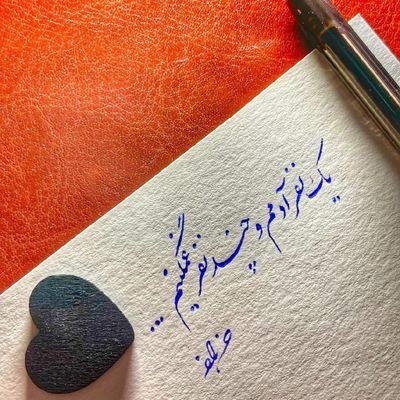 یک نفر آدمم و چند نفر غمگینم ...